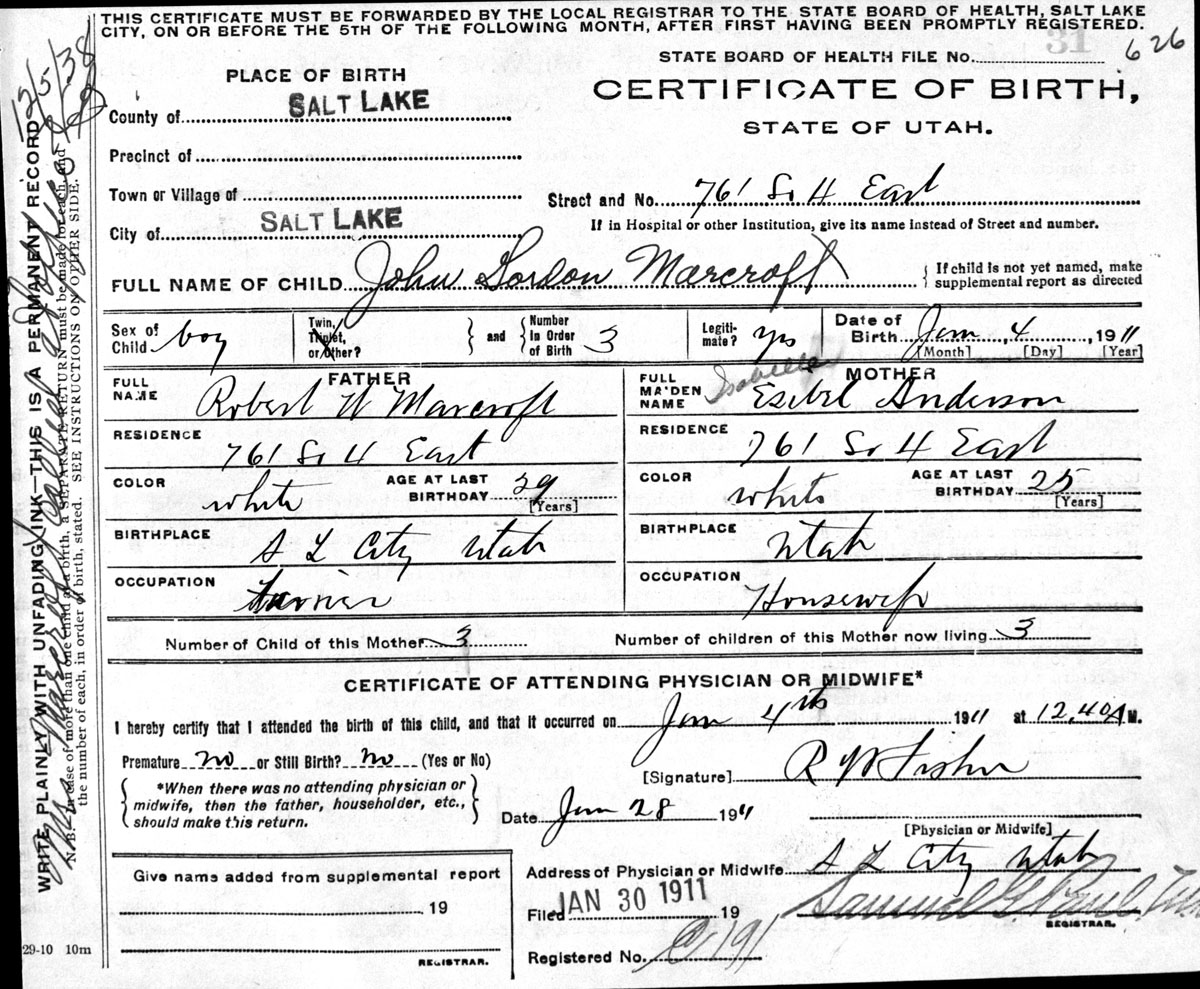 THIS CERTIFICATE MUST BE FORWARDED BY THE LOCAL REGISTRAR TO THE STATE BOARD OF HEALTH, SALT LAKE
CITY, ON OR BEFORE THE 5TH OF THE FOLLOWING MONTH, AFTER FIRST HAVING BEEN PROMPTLY REGISTERED.
31
STATE BOARD OF HEALTH FILE No. 626
PLACE OF BIRTH
CERTIFICATE OF BIRTH,
STATE OF UTAH.
County of SALT LAKE
Precinct of
Town or Village of
Street and No. 761 So 4 East
City of SALT LAKE
If in Hospital or other Institution, give its name instead of Street and number.
FULL NAME OF CHILD John Gordon Marcroft
If child is not yet named, make
supplemental report as directed
Sex of Child boy
Twin, Triplet, or Other?
and
Number In Order of Birth 3
Legiti-mate? yes
Date of Birth Jan 4, 1911
[Month] [Day] [Year]
FATHER
FULL NAME Robert W Marcroft
RESIDENCE 761 So 4 East
COLOR white
AGE AT LAST BIRTHDAY 29 [Years]
BIRTHPLACE S L City Utah
OCCUPATION
MOTHER
Isabella
FULL MAIDEN NAME Esibel Anderson
RESIDENCE 761 So 4 East
COLOR white
AGE AT LAST BIRTHDAY 25 [Years]
BIRTHPLACE Utah
OCCUPATION Housewife
Number of Child of this Mother 3
Number of children of this Mother now living 3
CERTIFICATE OF ATTENDING PHYSICIAN OR MIDWIFE*
I hereby certify that I attended the birth of this child, and that it occurred on Jan 4th 1911 at 12,40 A M.
Premature no or Still Birth? no (Yes or No)
[Signature] R W Fisher
*When there was no attending physician or
midwife, then the father, householder, etc.,
should make this return.
Date Jan 28 1911
[Physician or Midwife]
Address of Physician or Midwife S L City Utah
Give name added from supplemental report
19
REGISTRAR.
Filed JAN 30 1911 19
Samuel G. Paul
REGISTRAR.
Registered No. 191
29-10 10m
WRITE PLAINLY WITH UNFADING INK—THIS IS A PERMANENT RECORD
N. B.—In case of more than one child at a birth, a SEPARATE RETURN must be made for each, and
the number of each, in order of birth, stated. SEE INSTRUCTIONS ON OTHER SIDE.
12/5/38